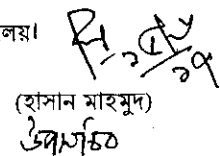 লয়।
(হাসান মাহমুদ)
উপসচিব